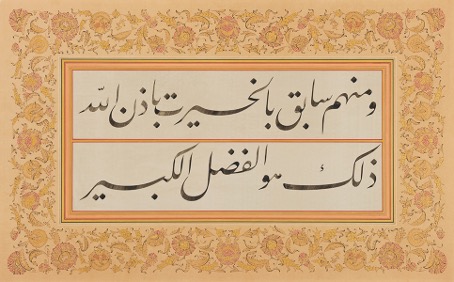 ومنهم سابق بالخيرت باذن الله
ذلك هو الفضل الكبير